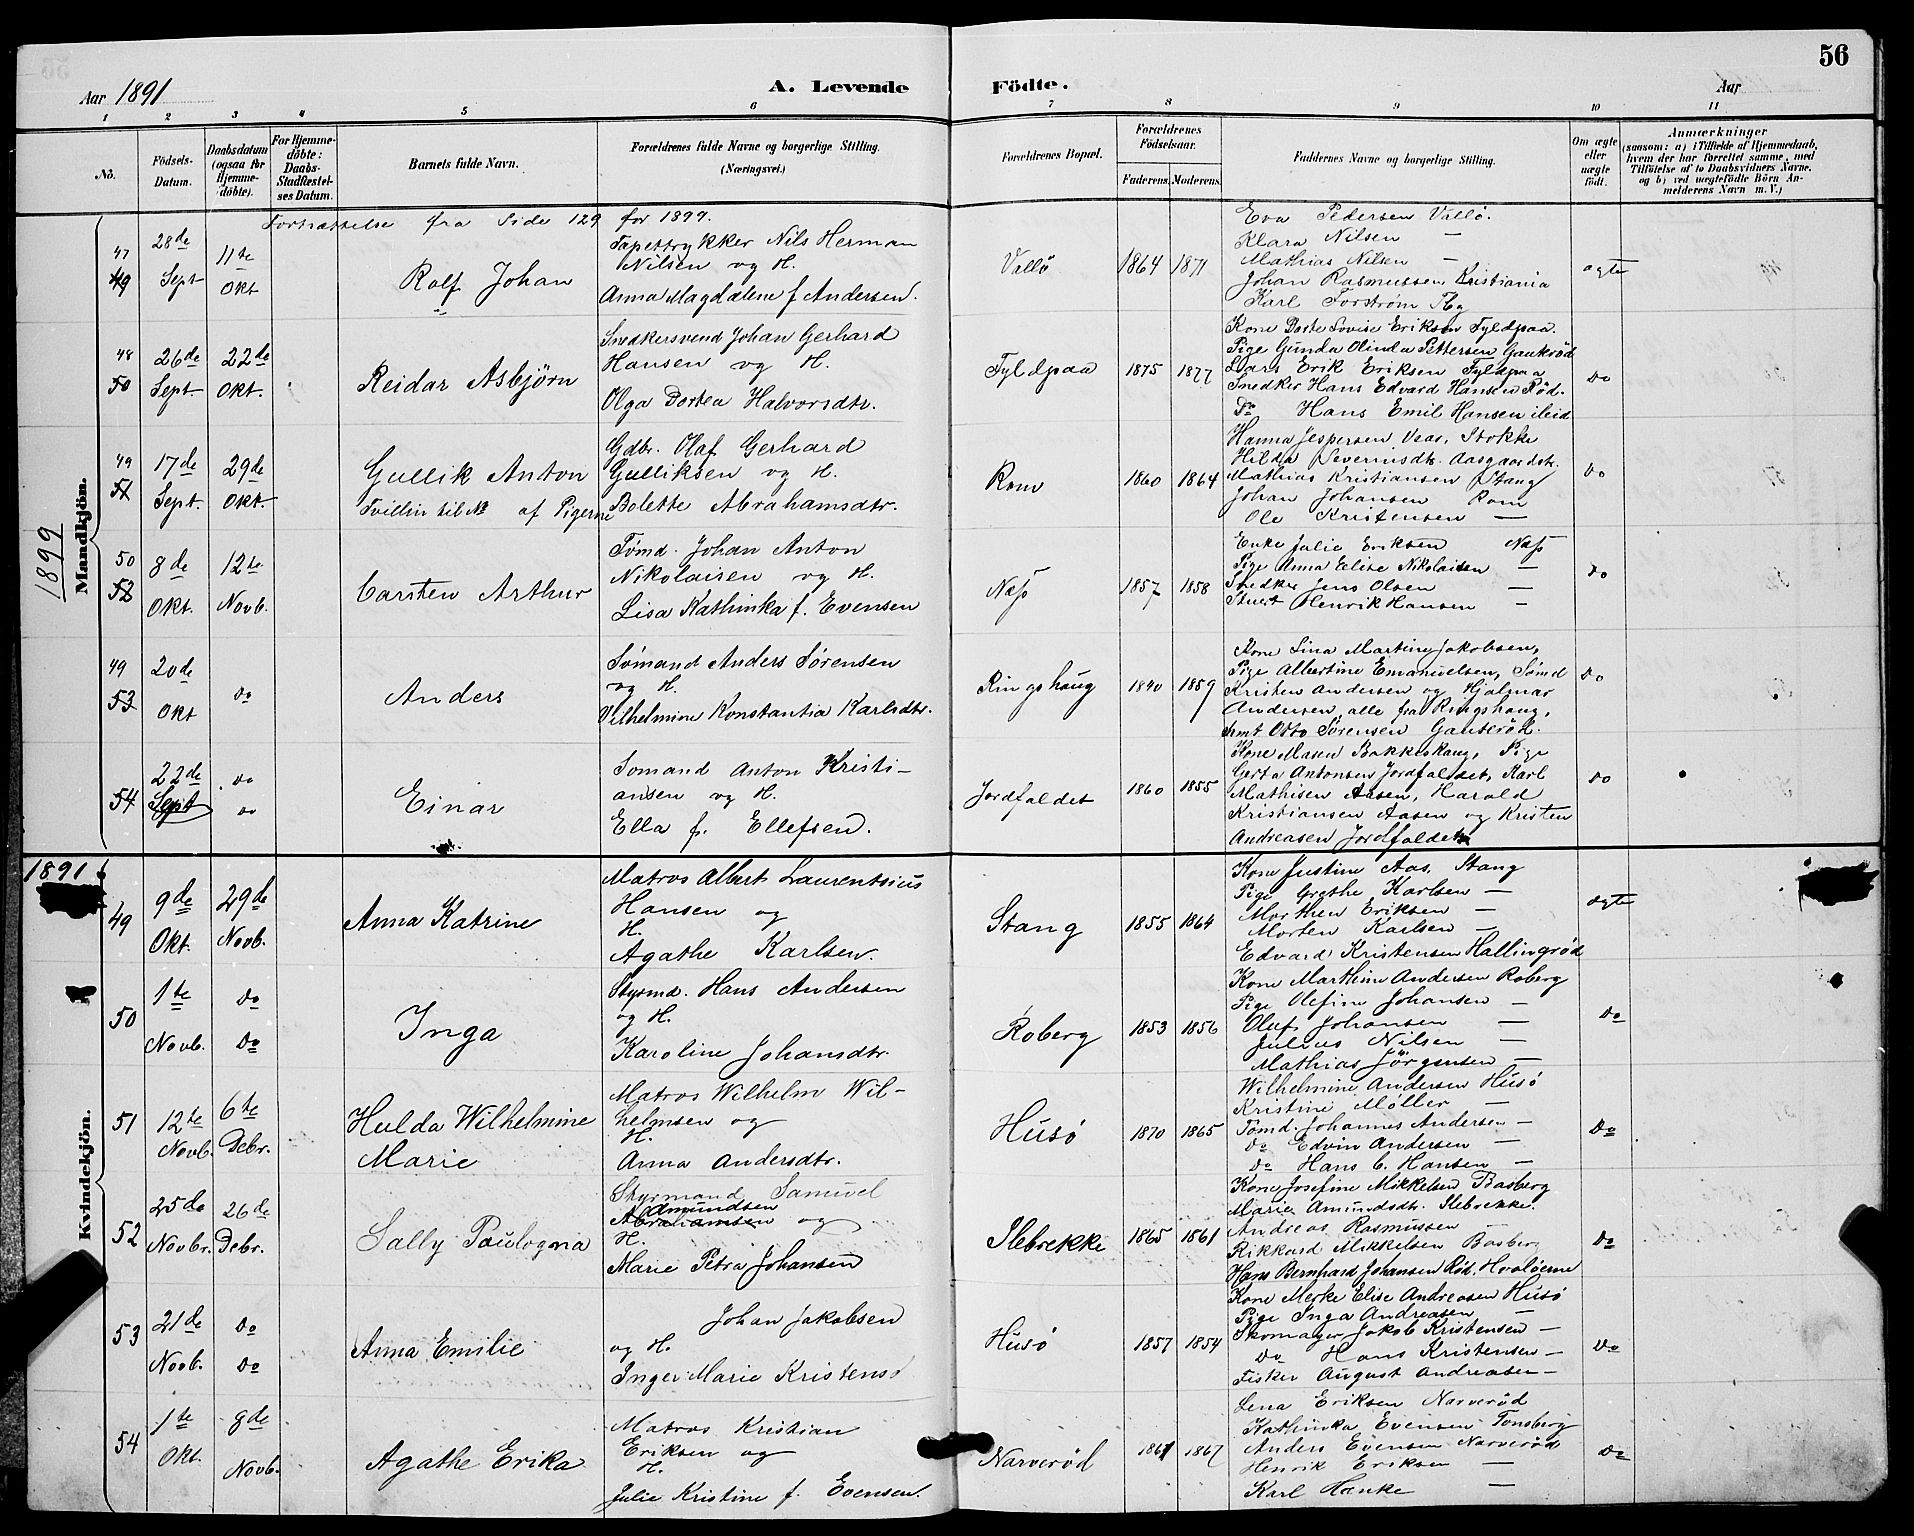 56
Aar 1891
A. Levende
Födte.
Aar
1 2 3 4 5 6 7 8 9 10 11
No.
Födsels-Datum.
Daabsdatum (ogsaa for Hjemme-döbte).
For Hjemme-döbte: Daabs-Stadfæstel-ses Datum.
Barnets fulde Navn.
Forældrenes fulde Navne og borgerlige Stilling. (Næringsvei.)
Forældrenes Bopæl.
Forældrenes Födselsaar.
Faderens. Moderens.
Faddernes Navne og borgerlige Stilling.
Om ægte eller uægte födt.
Anmærkninger
(saasom: a) i Tilfælde af Hjemmedaab,
hvem der har forrettet samme, med
Tilföielse af to Daabsvidners Navne.
og b) ved uægtefödte Börn An-
melderens Navn m. V.)
Fortsættelse fra Side 129 for 1899.
1899
Mandkjön.
47
49
28de
Sept
11te
Okt
Rolf Johan
Tapettrykker Nils Herman
Nilsen og H.
Anna Magdalene f Andersen.
Vallö
1864
1871
Eva Pedersen Vallö.
Klara Nilsen —
Mathias Nilsen —
Johan Rasmussen Kristiania
Karl Forström Tbg
ægte
48
50
26de
Sept.
22de
Okt.
Reidar Asbjørn
Snedkersvend Johan Gerhard
Hansen og H.
Olga Dortea Halvorsdtr.
Fyldpaa
1875
1877
Kone Dorte Lovise Eriksen Fyldpaa.
Pige Gunda Olinda Pettersen Gaukröd
Lars Erik Eriksen Fyldpaa
Snedker Hans Edvard Hansen Röd.
Do Hans Emil Hansen ibid
Do
49
51
17de
Sept.
29de
Okt.
Gullik Anton
Tvilling til No af Pigerne
Gdbr. Olaf Gerhard
Gulliksen og H.
Bolette Abrahamsdtr.
Rom
1860
1864
Hanna Jespersen Veas, Stokke
Hilda Severinsdtr. Aasgaardstr.
Mathias Kristiansen Stang
Johan Johansen Rom
Ole Kristensen —
Do
50
52
8de
Okt.
12te
Novb.
Carsten Arthur
Sømd. Johan Anton
Nikolaisen og H.
Lisa Kathinka f. Evensen
Næs
1857
1858
Enke Julie Eriksen Næs
Pige Anna Elise Nikolaisen —
Snedker Jens Olsen —
Stuert Henrik Hansen —
Do
49
53
20de
Okt
Do
Anders
Sømand Anders Sørensen
og H.
Vilhelmine Konstantia Karlsdtr.
Ringshaug
1840
1859
Kone Lina Martine Jakobsen,
Pige Albertine Emanuelsen, Sømd
Kristen Andersen og Hjalmar
Andersen alle fra Ringshaug,
samt Otto Sørensen Gauteröd.
Do
54
22de
Sept
Do
Do
Einar
Somand Anton Kristi-
ansen og H.
Ella f. Ellefsen.
Jordfaldet
1860
1855
Kone Maren Bakkeshaug, Pige
Gerta Antonsen Jordfaldet, Karl
Mathisen Aasen, Harald
Kristiansen Aasen og Kristen
Andreasen Jordfaldet
Do
1891
Kvindekjön.
49
9de
Okt.
29de
Novb.
Anna Katrine
Matros Albert Laurentsius
Hansen og
H.
Agathe Karlsen.
Stang
1855
1864
Kone Justine Aas, Stang
Pige Grethe Karlsen —
Morthen Eriksen —
Morten Karlsen —
Edvard Kristensen Hallingröd
ægte
50
1te
Novb.
Do
Do
Inga
Styrmd. Hans Andersen
og H.
Karoline Johansdtr.
Roberg
1853
1856
Kone Marthine Andersen Roberg
Pige Olefine Johansen —
Oluf Johansen —
Julius Nilsen —
Mathias Jörgensen —
Do
51
12te
Novb.
6te
Debr.
Hulda Wilhelmine
Marie
Matros Wilhelm Wil-
helmsen og
H.
Anna Andersdtr.
Husö
1870
1865
Wilhelmine Andersen Husö
Kristine Møller —
Sømd. Johannes Andersen —
Do Edvin Andersen —
Do Hans C. Hansen —
Do
52
25de
Novbr.
26de
Debr.
Sally Paulogna
Styrmand Samuel
Admundsen
Abrahamsen og
H.
Marie Petra Johansen
Ilebrekke
1865
1861
Kone Josefine Mikkelsen Basberg
Marie Amundsdtr. Ilebrekke.
Andreas Rasmussen —
Rikkard Mikkelsen Basberg
Hans Bernhard Johansen Röd, Hvaløerne
Do
53
21de
Novb.
Do
Do
Anna Emilie
Johan Jakobsen
og H.
Inger Marie Kristensd
Husö
1857
1854
Kone Merke Elise Andreasen Husö
Pige Inga Andreasen —
Skomager Jakob Kristensen —
Do Hans Kristensen —
Fisker August Andreasen —
Do
54
1te
Okt.
8de
Novb.
Agathe Erika
Matros Kristian
Eriksen og
H.
Julie Kristine f. Evensen.
Narveröd
1861
1867
Lena Eriksen Narveröd
Kathinka Evensen Tønsberg
Anders Evensen Narveröd
Henrik Eriksen —
Karl Hanke —
Do